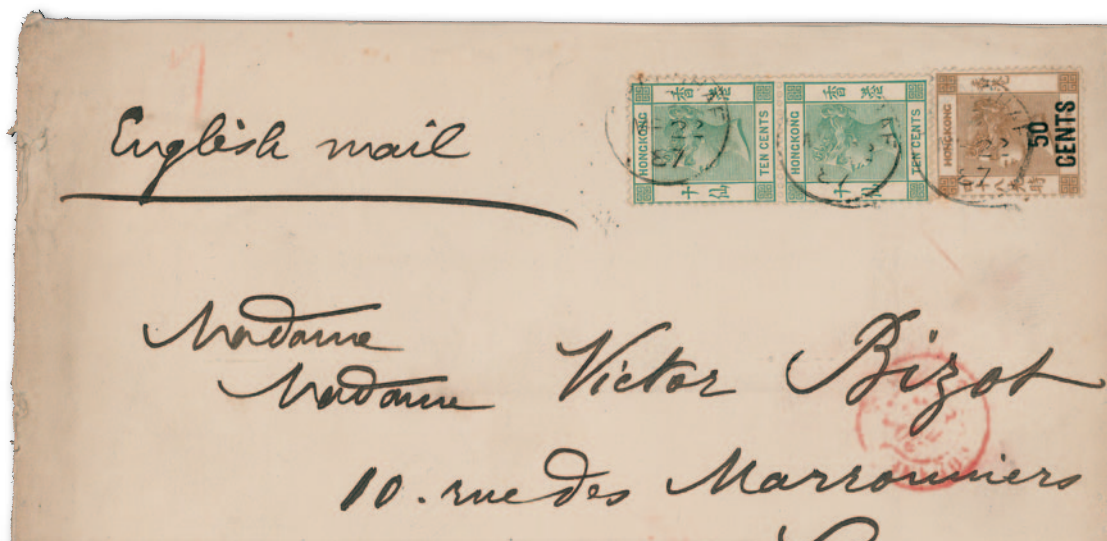 English mail
HONGKONG
香港
TEN CENTS
HONGKONG
香港
TEN CENTS
HONGKONG
50
CENTS
Madame
Madame Victor Bizot
10. rue des Marronniers